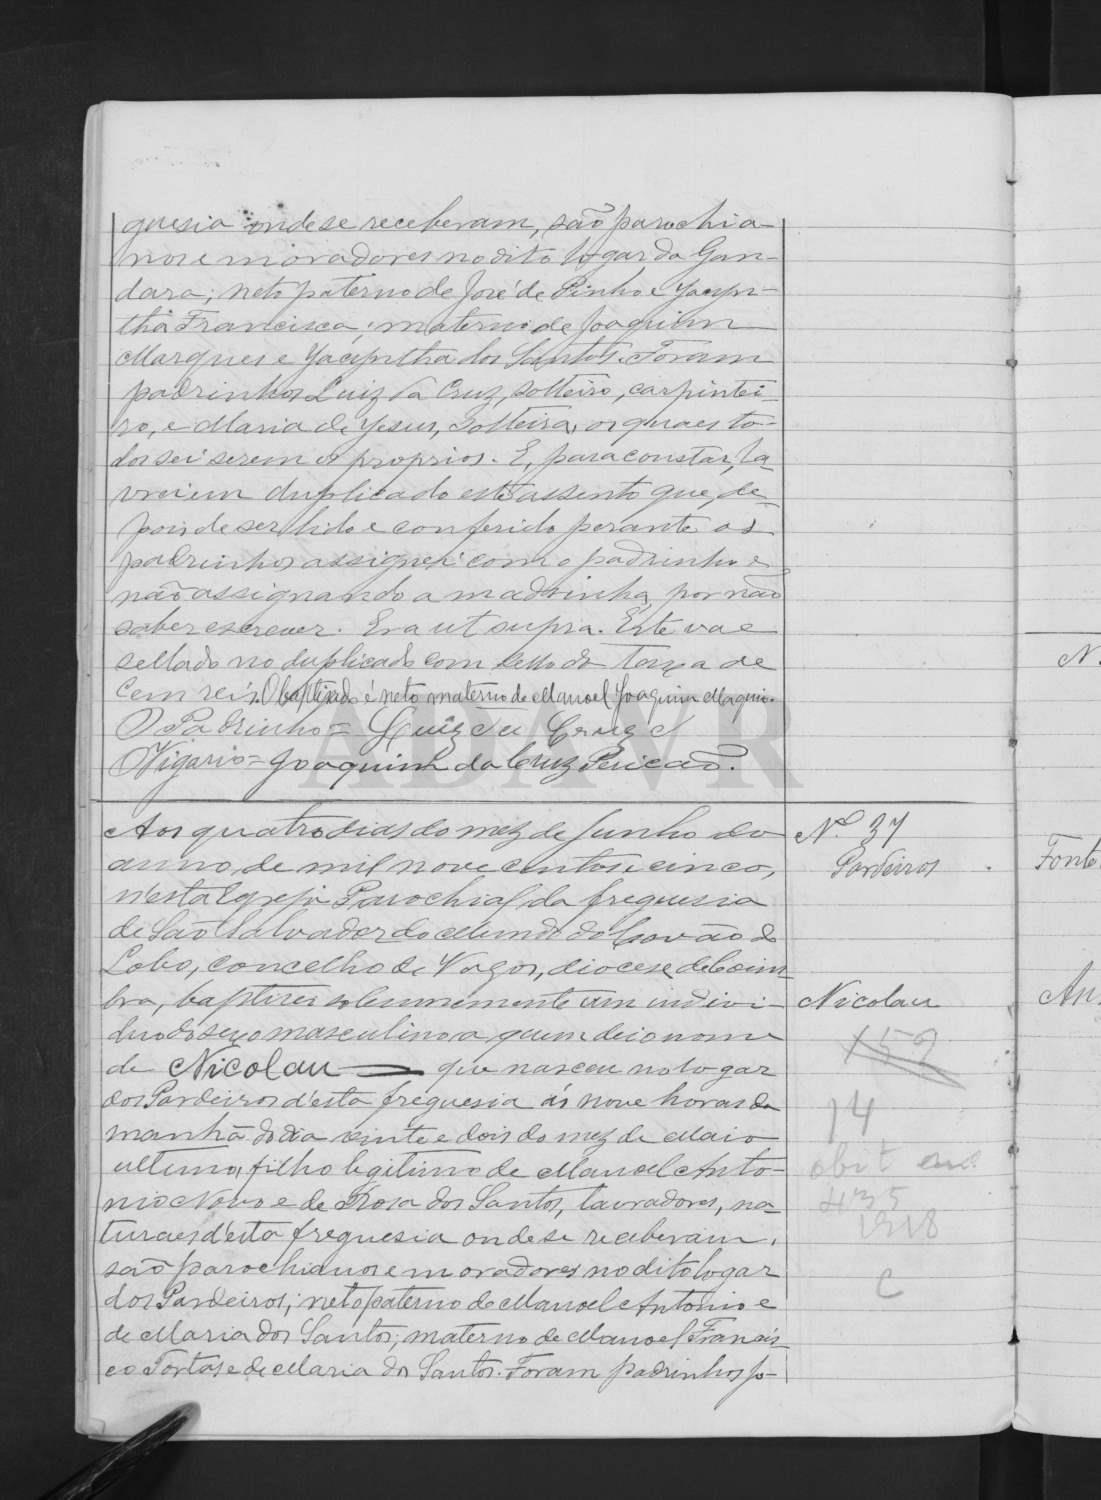 guesia onde se receberam, são parochia-
nos e moradores no dito logar da Gan-
dara; neto paterno de José de Pinho e Jacyn-
tha Francisca; materno de Joaquim
Marques e Jacyntha dos Santos. Foram
padrinhos Luiz da Cruz, solteiro, carpintei-
ro, e Maria de Jesus, solteira, os quaes to-
dos sei serem os proprios. E, para constar, la-
vrei em duplicado este assento que, de-
pois de ser lido e conferido perante os
padrinhos assignei com o padrinho e
não assignando a madrinha, por não
saber escrever. Era ut supra. Este vae
sellado no duplicado com sello da taxa de
cem reis. O baptizado é neto materno de Manoel Joaquim Maquio.
O Padrinho = Luiz da Cruz
O Vigario = Joaquim da Cruz Pericão.
ADAVR
Aos quatro dias do mez de Junho do
anno de mil nove centos e cinco,
n'esta Egreja Parochial da freguesia
de São Salvador do Mundo do Covão do
Lobo, concelho de Vagos, diocese de Coim-
bra, baptizei solemnemente um indivi-
duo do sexo masculino a quem dei o nome
de Nicolau — que nasceu no logar
dos Pardeiros d'esta freguesia ás nove horas da
manhã do dia vinte e dois do mez de Maio
ultimo, filho legitimo de Manoel Anto-
nio Novo e de Rosa dos Santos, lavradores, na-
turaes d'esta freguesia onde se receberam,
são parochianos e moradores no dito logar
dos Pardeiros; neto paterno de Manoel Antonio e
de Maria dos Santos; materno de Manoel Francis-
co Tortas e de Maria dos Santos. Foram padrinhos Jo-
Nº 37
Pardeiros
Nicolau
159
14
obit
435
1918
C
N.
Fonte
An